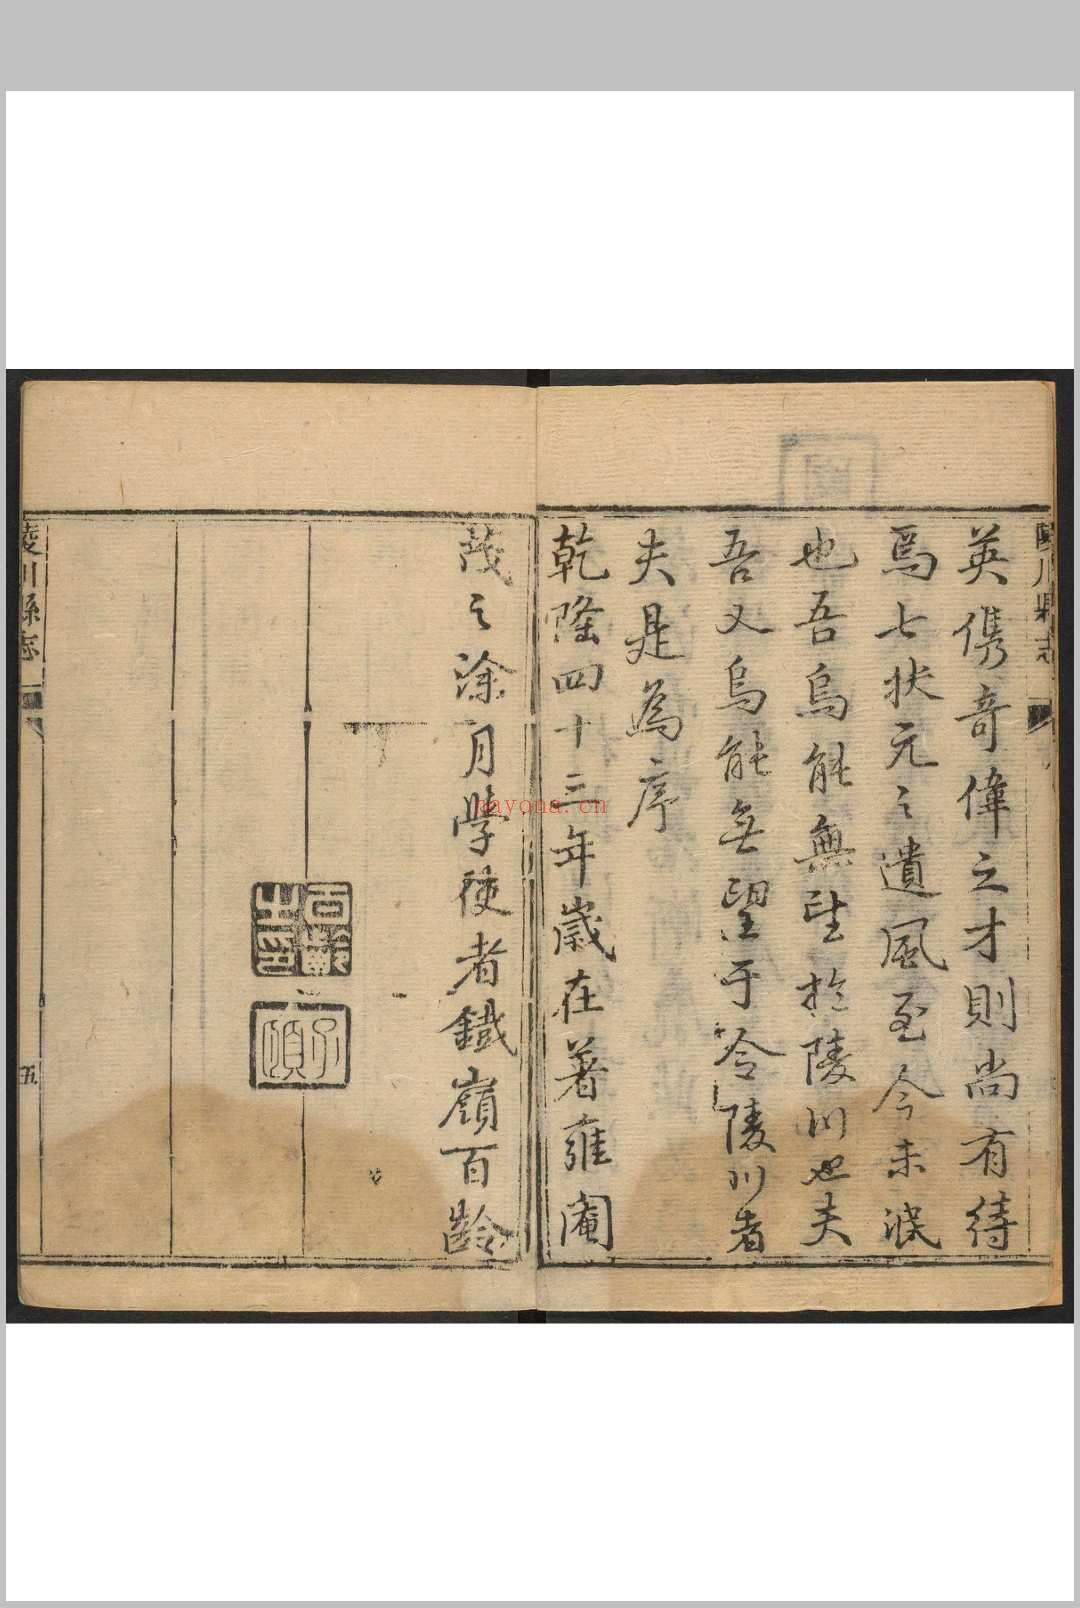 陵川縣志
英儁奇偉之才則尚有待
焉七狀元之遺風至今未泯
也吾烏能無望於陵川也夫
吾又烏能無望于令陵川者
夫是為序
乾隆四十三年歲在著雍閹
茂之涂月學使者鐵嶺百齡
百齡之印
子頤
陵川縣志
五
nayona.cn